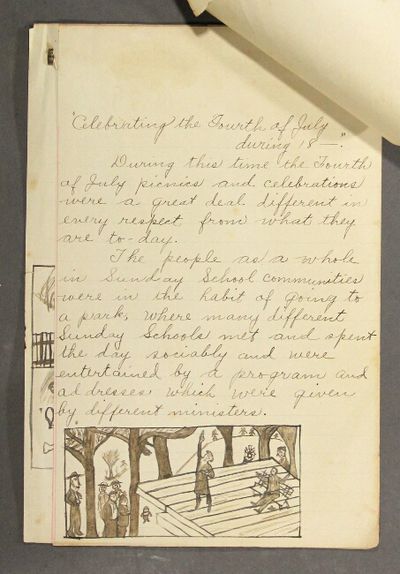 "Celebrating the Fourth of July
during 18—."
During this time the Fourth
of July picnics and celebrations
were a great deal different in
every respect from what they
are to-day.
The people as a whole
in Sunday School communities
were in the habit of going to
a park, where many different
Sunday Schools met and spent
the day sociably and were
entertained by a program and
addresses which were given
by different ministers.